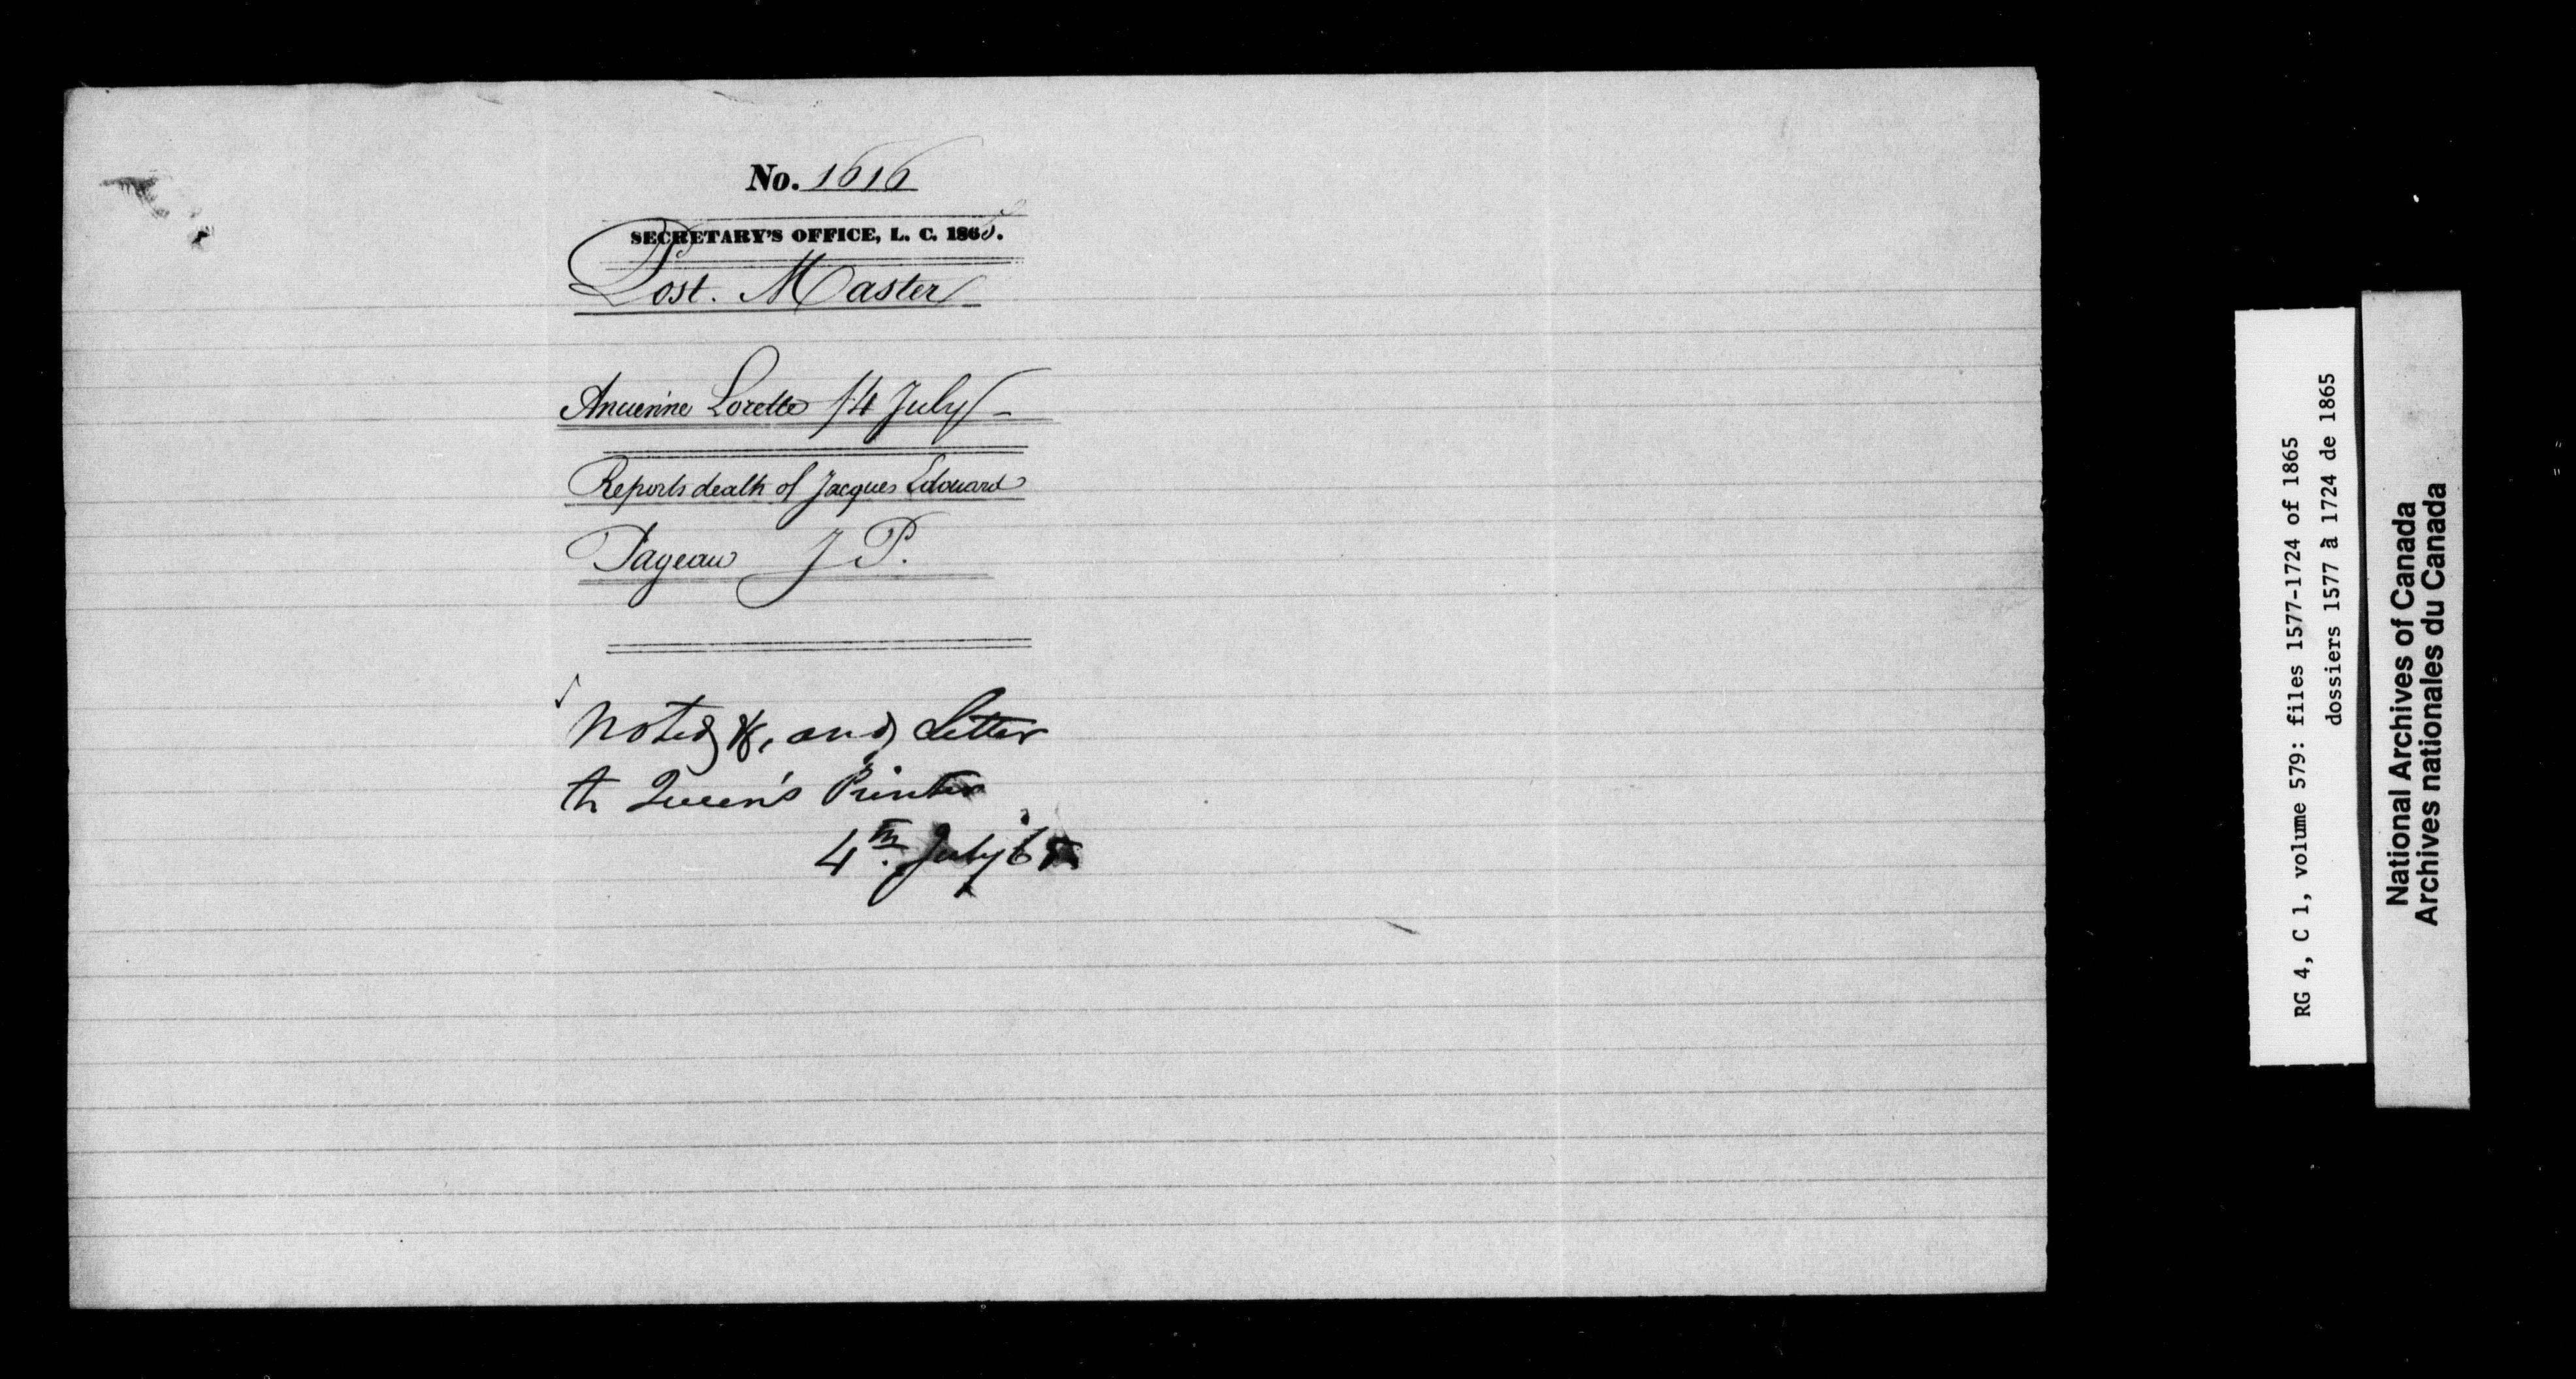 No. 1616
SECRETARY'S OFFICE, L. C. 1865.
Post. Master
Ancienne Lorette 14 July
Reports death of Jacques Edouard
Pageau J P.
Noted &c, and Letter
to Queen's Printer
4th. July 65
RG 4, C 1, volume 579: files 1577-1724 of 1865
dossiers 1577 à 1724 de 1865
National Archives of Canada
Archives nationales du Canada